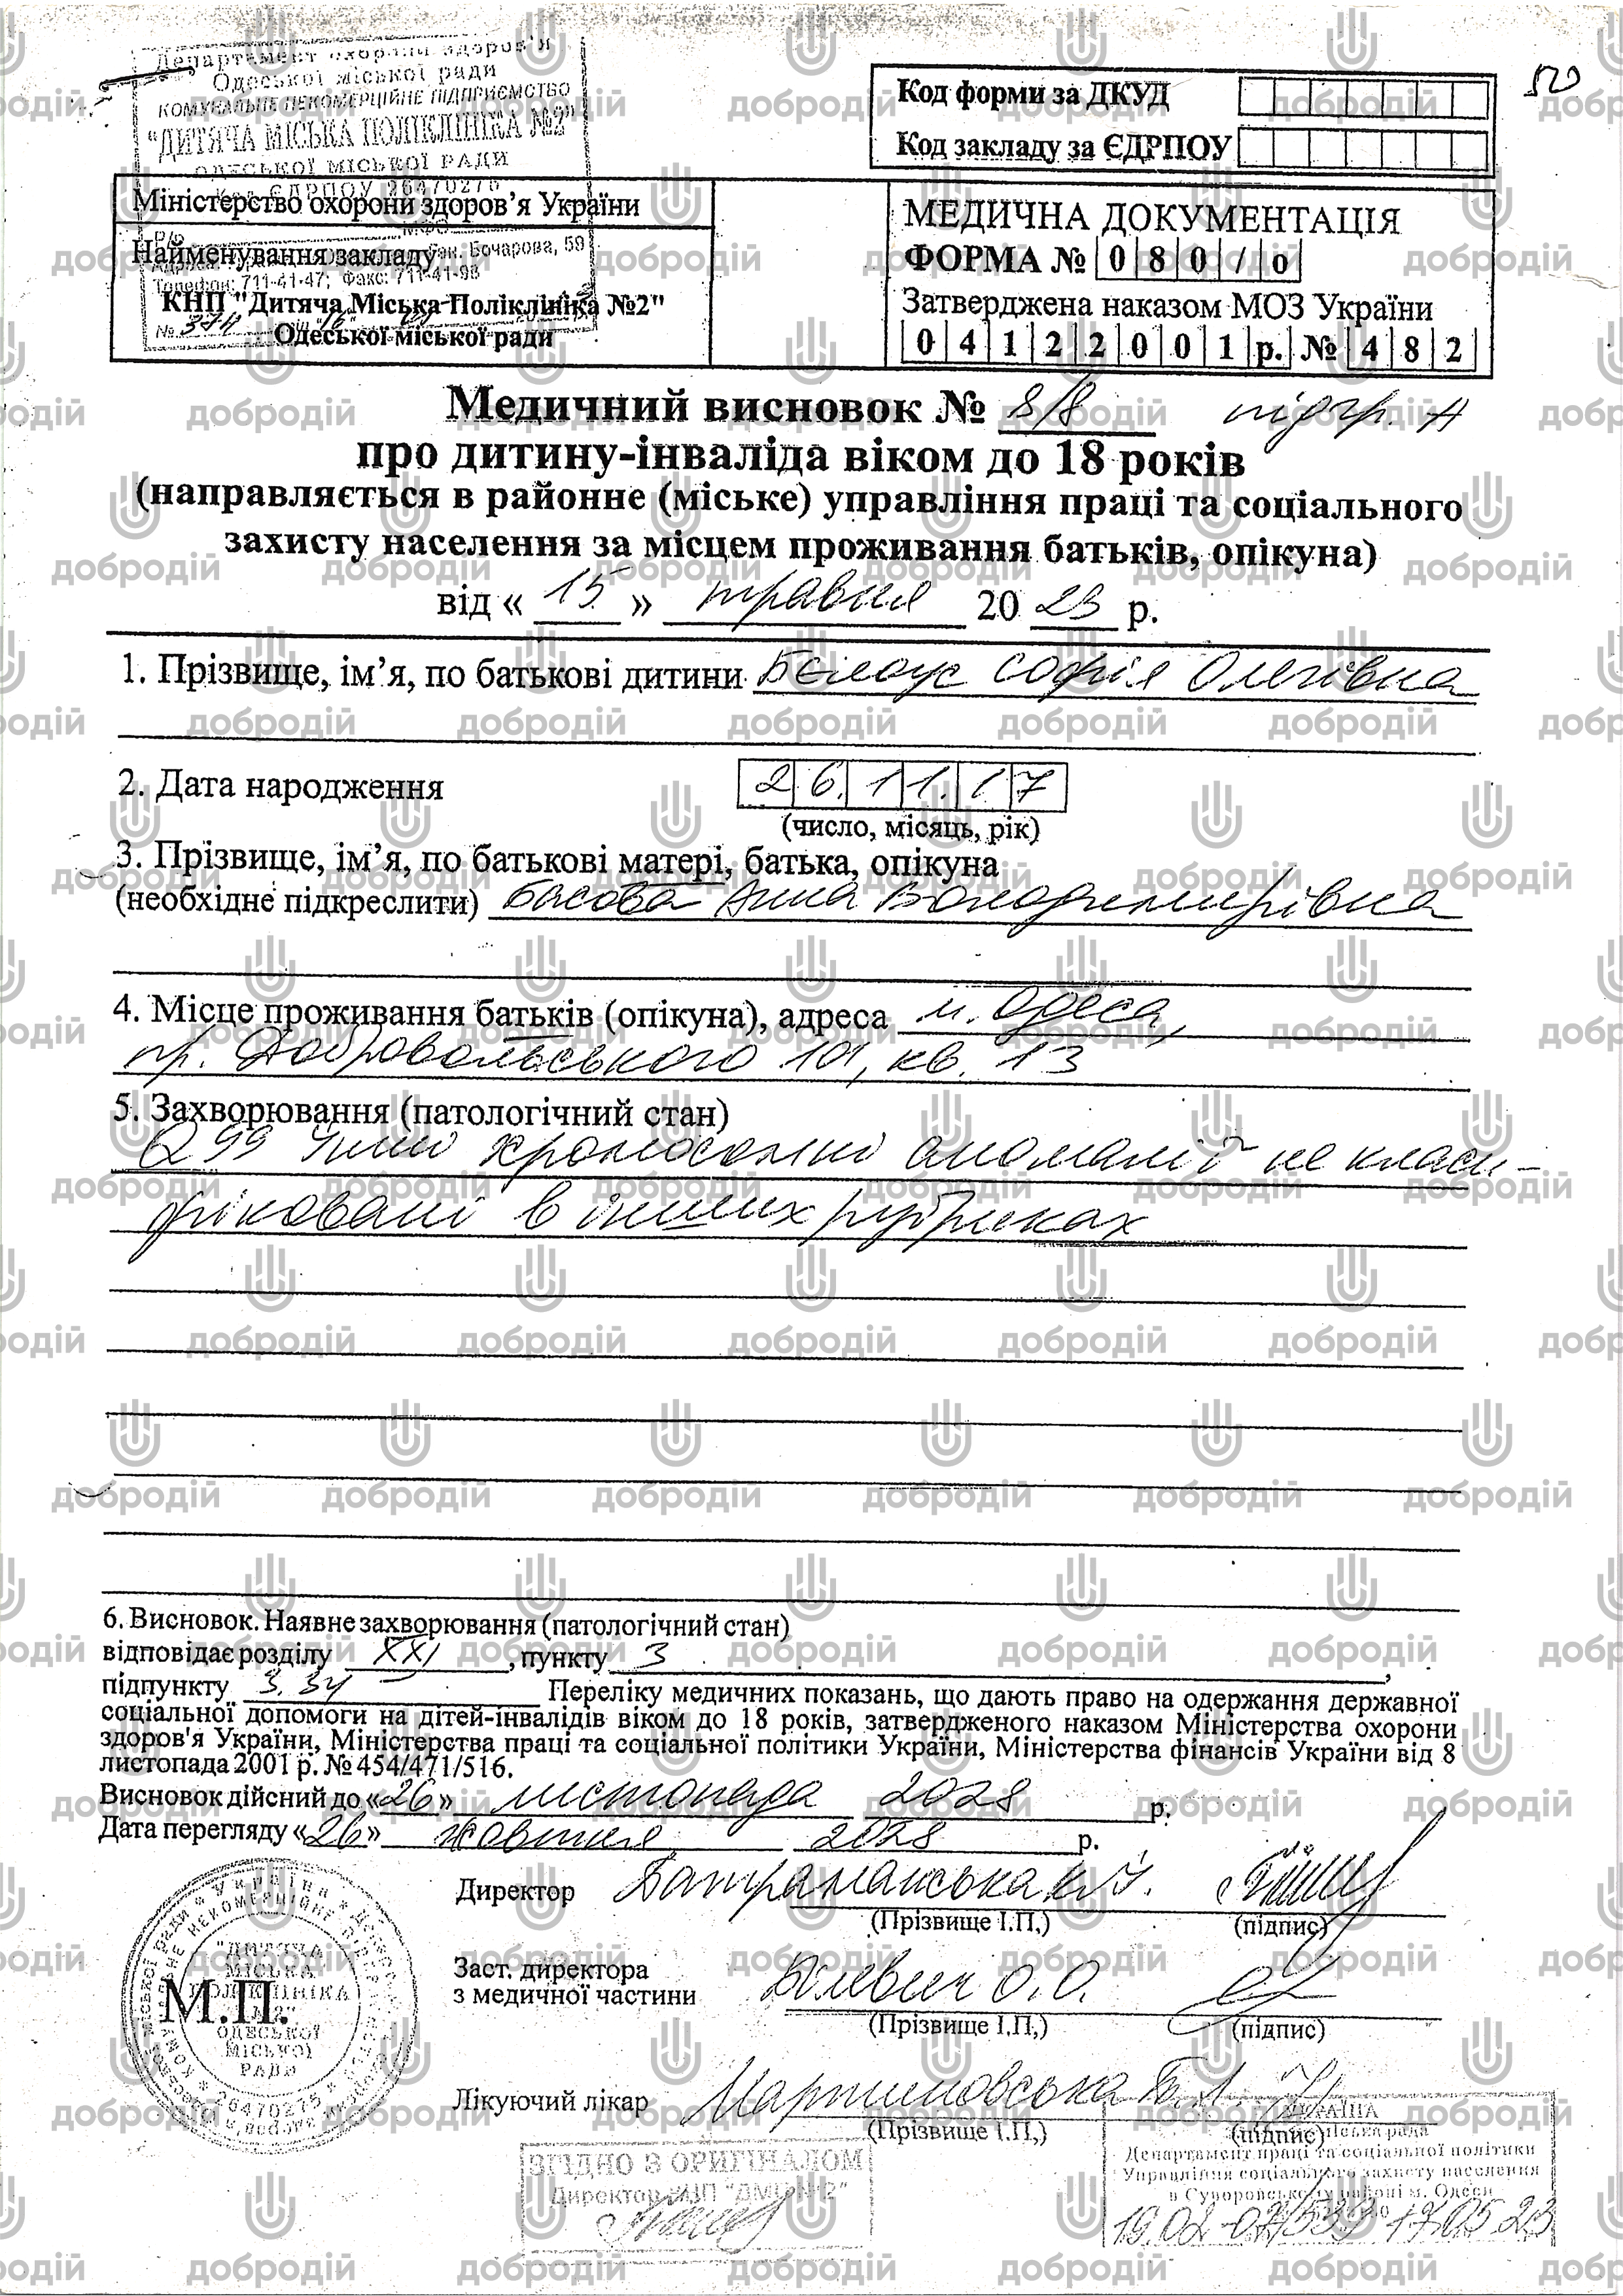 Департамент охорони здоров'я
Одеської міської ради
КОМУНАЛЬНЕ НЕКОМЕРЦІЙНЕ ПІДПРИЄМСТВО
"ДИТЯЧА МІСЬКА ПОЛІКЛІНІКА №2"
ОДЕСЬКОЇ МІСЬКОЇ РАДИ
Код ЄДРПОУ 26470275
Бочарова, 59
Телефон: 711-41-47; Факс: 711-41-98
№ 374
520
Код форми за ДКУД
Код закладу за ЄДРПОУ
Міністерство охорони здоров’я України
Найменування закладу
КНП "Дитяча Міська Поліклініка №2"
Одеської міської ради
МЕДИЧНА ДОКУМЕНТАЦІЯ
ФОРМА № 080/о
Затверджена наказом МОЗ України
04122001р. № 482
Медичний висновок № 8/8 підгр. А
про дитину-інваліда віком до 18 років
(направляється в районне (міське) управління праці та соціального
захисту населення за місцем проживання батьків, опікуна)
від « 15 » травня 20 23 р.
1. Прізвище, ім’я, по батькові дитини Бєлоус Софія Олегівна
2. Дата народження 26.11.17
(число, місяць, рік)
3. Прізвище, ім’я, по батькові матері, батька, опікуна
(необхідне підкреслити) Басова Анна Володимирівна
4. Місце проживання батьків (опікуна), адреса м. Одеса,
пр. Добровольського 101, кв. 13
5. Захворювання (патологічний стан)
Q99 Інші хромосомні аномалії не класи-
фіковані в інших рубриках
6. Висновок. Наявне захворювання (патологічний стан)
відповідає розділу XXI, пункту 3,
підпункту 3.34 Переліку медичних показань, що дають право на одержання державної
соціальної допомоги на дітей-інвалідів віком до 18 років, затвердженого наказом Міністерства охорони
здоров'я України, Міністерства праці та соціальної політики України, Міністерства фінансів України від 8
листопада 2001 р. № 454/471/516.
Висновок дійсний до «26» листопада 2028 р.
Дата перегляду «26» жовтня 2028 р.
Директор
(Прізвище І.П,) (підпис)
Заст. директора
з медичної частини О.О.
(Прізвище І.П,) (підпис)
Лікуючий лікар Мартиновська
(Прізвище І.П,) (підпис)
М.П.
"ДИТЯЧА
МІСЬКА
ПОЛІКЛІНІКА
№2"
ОДЕСЬКОЇ
МІСЬКОЇ
РАДИ
26470275
ЗГІДНО З ОРИГІНАЛОМ
Директор КНП "ДМП №2"
УКРАЇНА
міська рада
Департамент праці та соціальної політики
Управління соціального захисту населення
в Суворовському районі м. Одеси
17.05.23
добродій